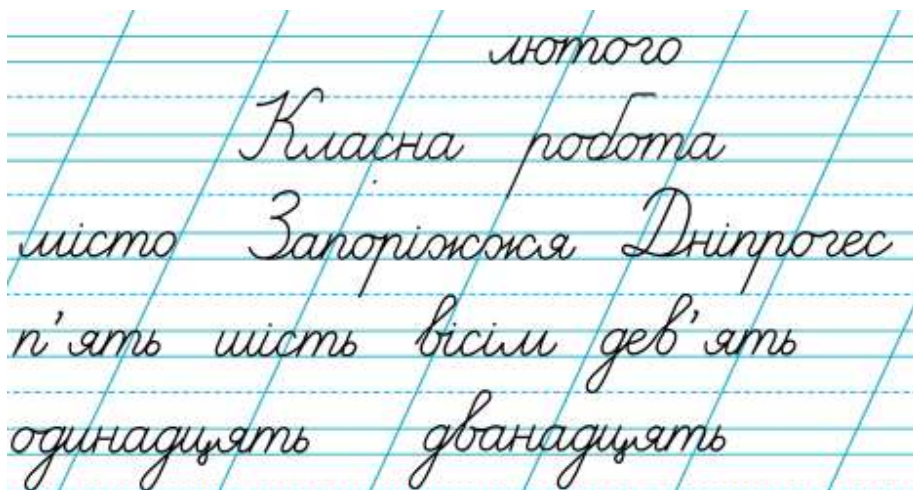 лютого
Класна робота
місто Запоріжжя Дніпрогес
п'ять шість вісім дев'ять
одинадцять дванадцять